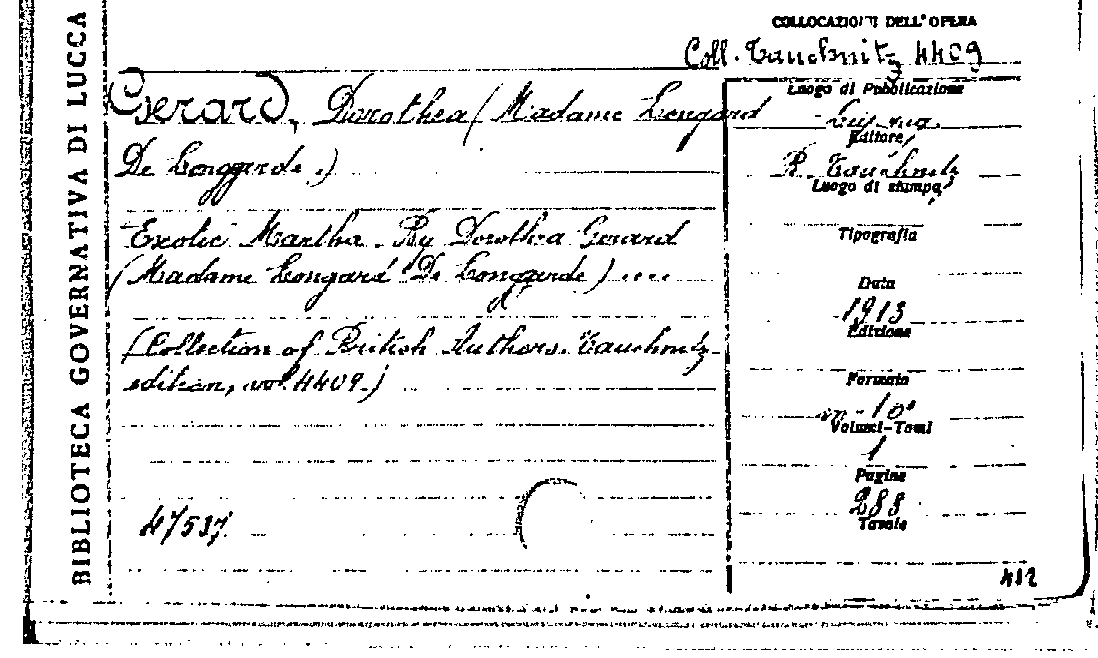 BIBLIOTECA GOVERNATIVA DI LUCCA
COLLOCAZIONI DELL' OPERA
Coll. Tauchnitz 4409
Gerard, Dorothea (Madame Longard
De Longgarde.)
Exotic Martha. By Dorothea Gerard
(Madame Longard De Longgarde) ....
(Collection of British Authors. Tauchnitz
edition, vol. 4409.)
47537
Luogo di Pubblicazione
Editore
B. Tauchnitz
Luogo di stampa
Tipografia
Data
1913
Edizione
Formato
in-16°
Volumi-Tomi
1
Pagine
288
Tavole
412